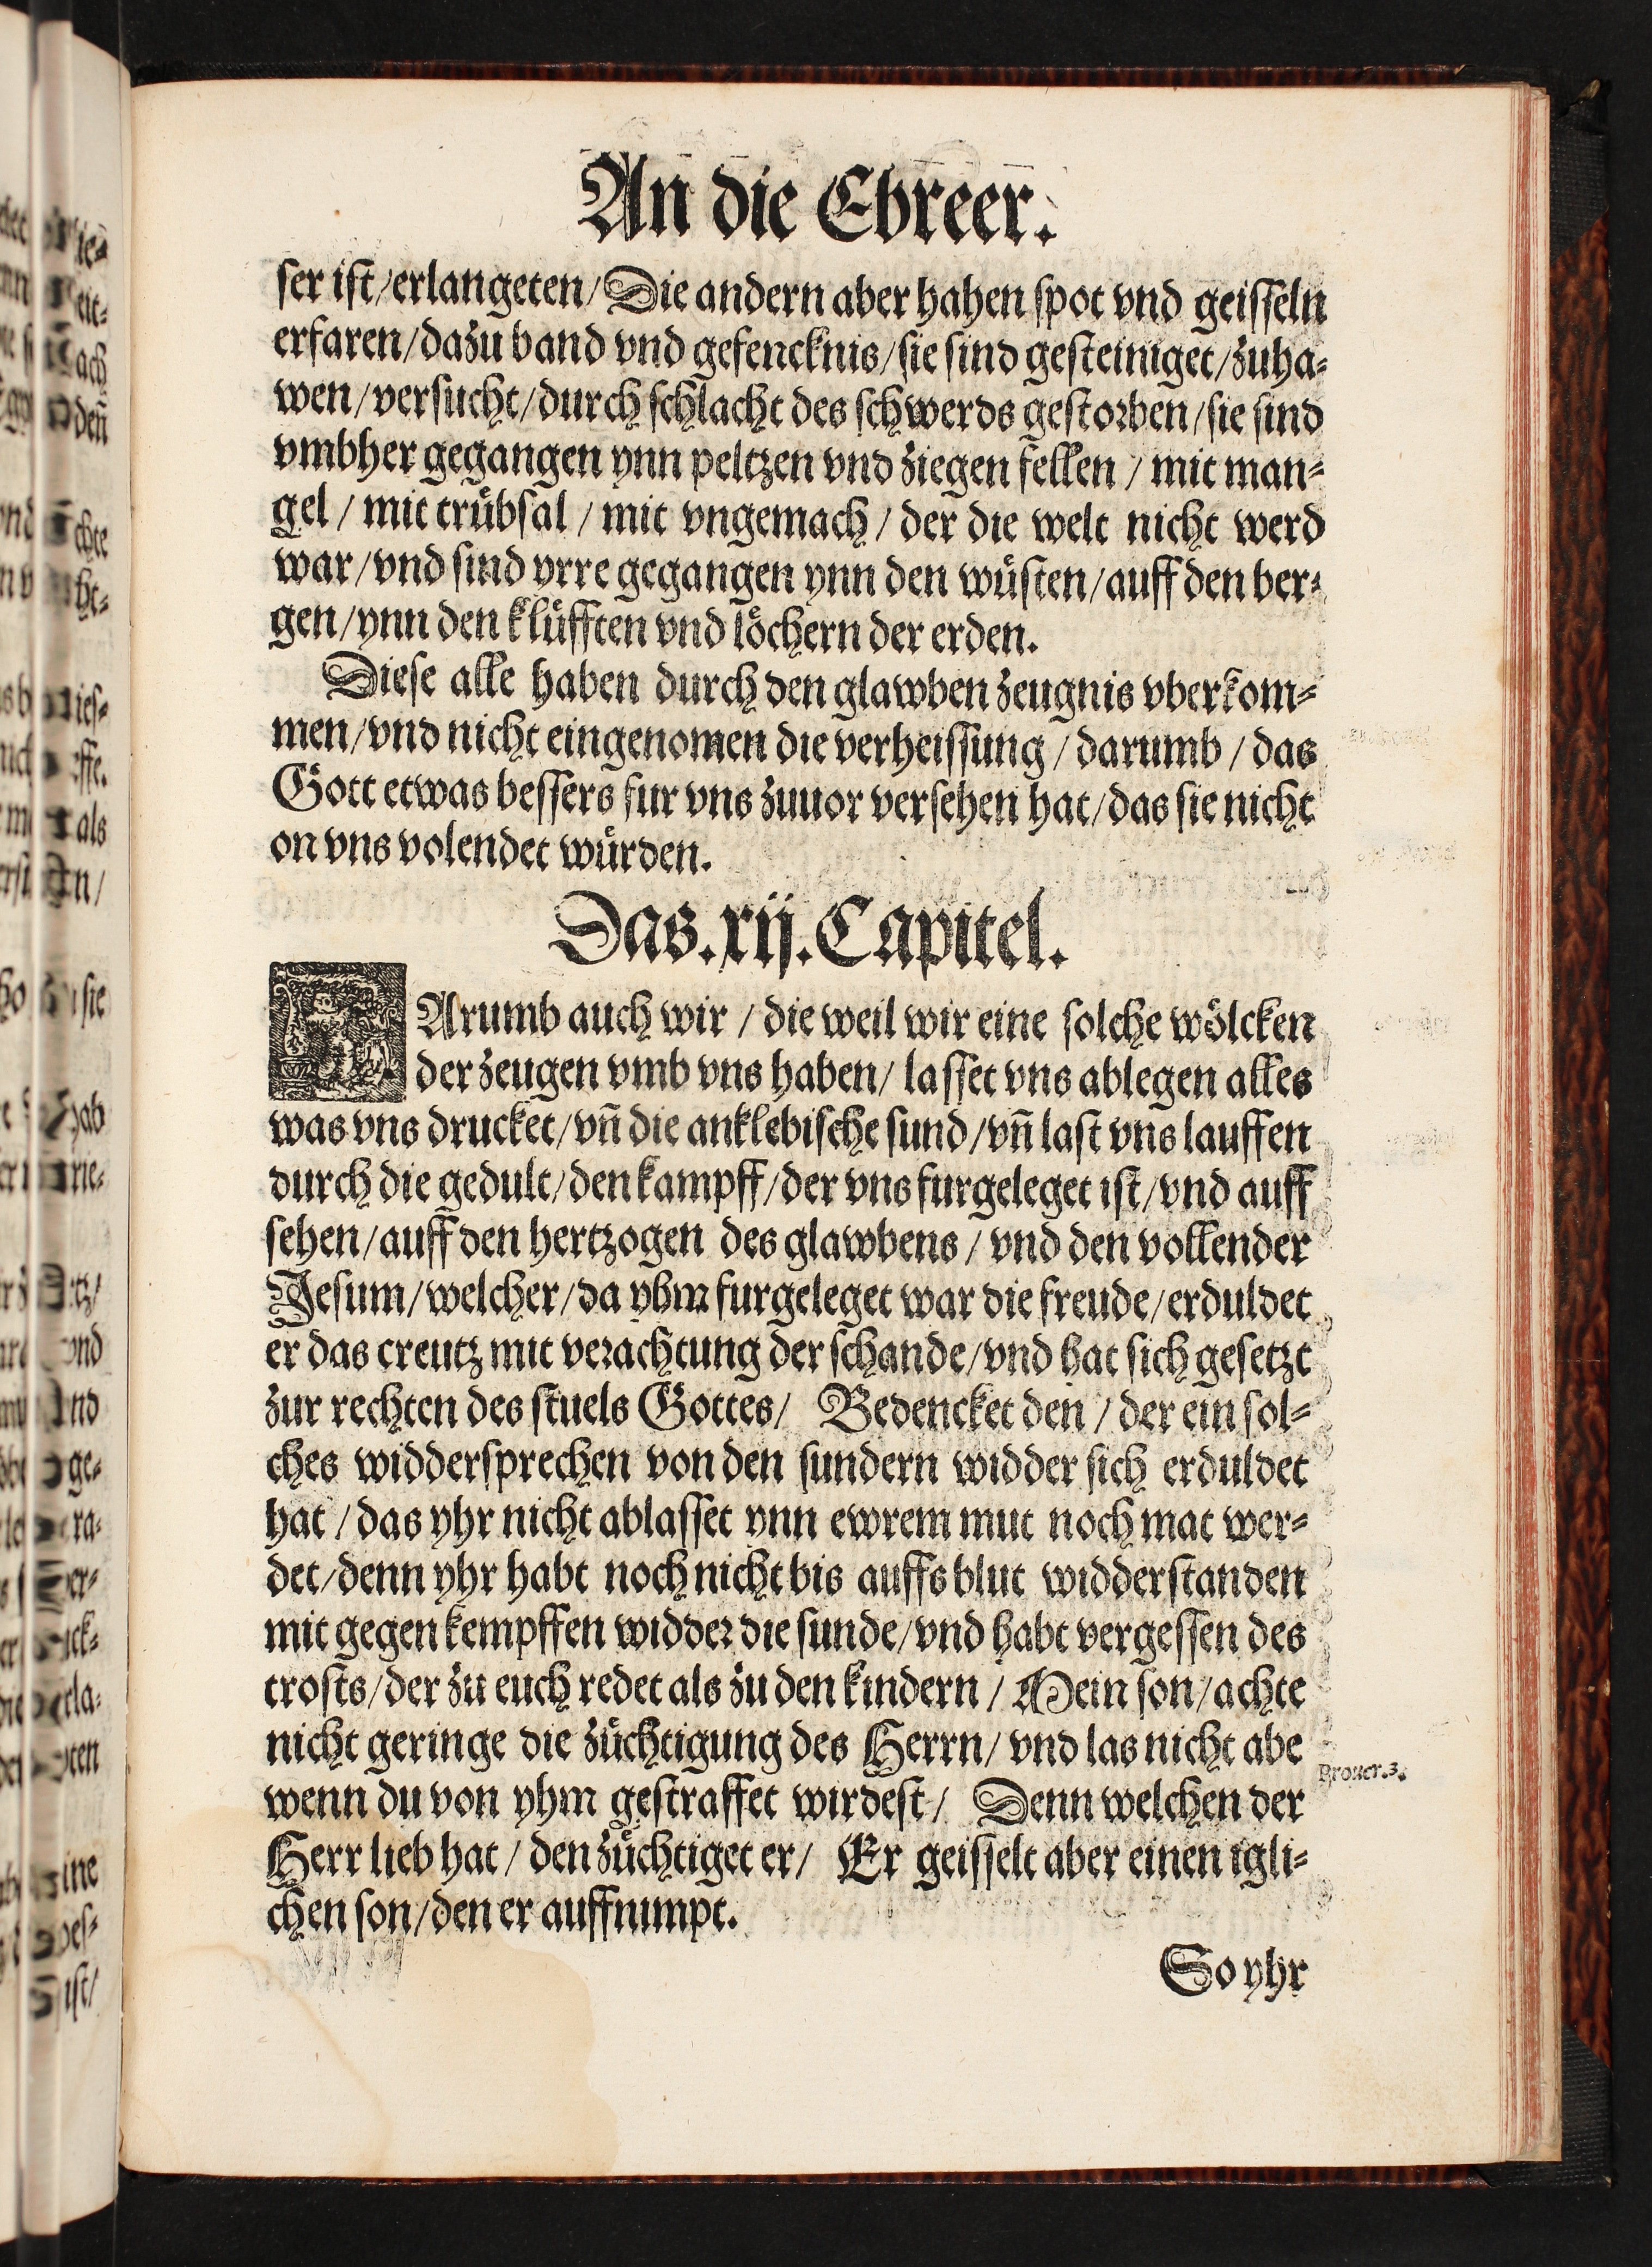 An die Ebreer.
ser ist/erlangeten/Die andern aber hahen spot vnd geisseln
erfaren/dazu band vnd gefencknis/sie sind gesteiniget/zuha⸗
wen/versucht/durch schlacht des schwerds gestorben/sie sind
vmbher gegangen ynn peltzen vnd ziegen fellen / mit man⸗
gel / mit trůbsal / mit vngemach / der die welt nicht werd
war/vnd sind yrre gegangen ynn den wůsten/auff den ber⸗
gen/ynn den klůfften vnd lőchern der erden.
Diese alle haben durch den glawben zeugnis vberkom⸗
men/vnd nicht eingenomen die verheissung / darumb / das
Gott etwas bessers fur vns zuuor versehen hat/das sie nicht
on vns volendet wůrden.
Das.xij.Capitel.
DArumb auch wir / die weil wir eine solche wölcken
der zeugen vmb vns haben/ lasset vns ablegen alles
was vns drucket/vn̄ die anklebische sund/vn̄ last vns lauffen
durch die gedult/den kampff/der vns furgeleget ist/vnd auff
sehen/auff den hertzogen des glawbens / vnd den vollender
Jesum/welcher/da yhm furgeleget war die freude/erduldet
er das creutz mit verachtung der schande/vnd hat sich gesetzt
zur rechten des stuels Gottes/ Bedencket den / der ein sol⸗
ches widdersprechen von den sundern widder sich erduldet
hat / das yhr nicht ablasset ynn ewrem mut noch mat wer⸗
det/denn yhr habt noch nicht bis auffs blut widderstanden
mit gegen kempffen widder die sunde/vnd habt vergessen des
trosts/der zu euch redet als zu den kindern / Mein son/achte
nicht geringe die zůchtigung des Herrn/ vnd las nicht abe
Prouer.3.
wenn du von yhm gestraffet wirdest/ Denn welchen der
Herr lieb hat / den zůchtiget er/ Er geisselt aber einen igli⸗
chen son/den er auffnimpt.
So yhr